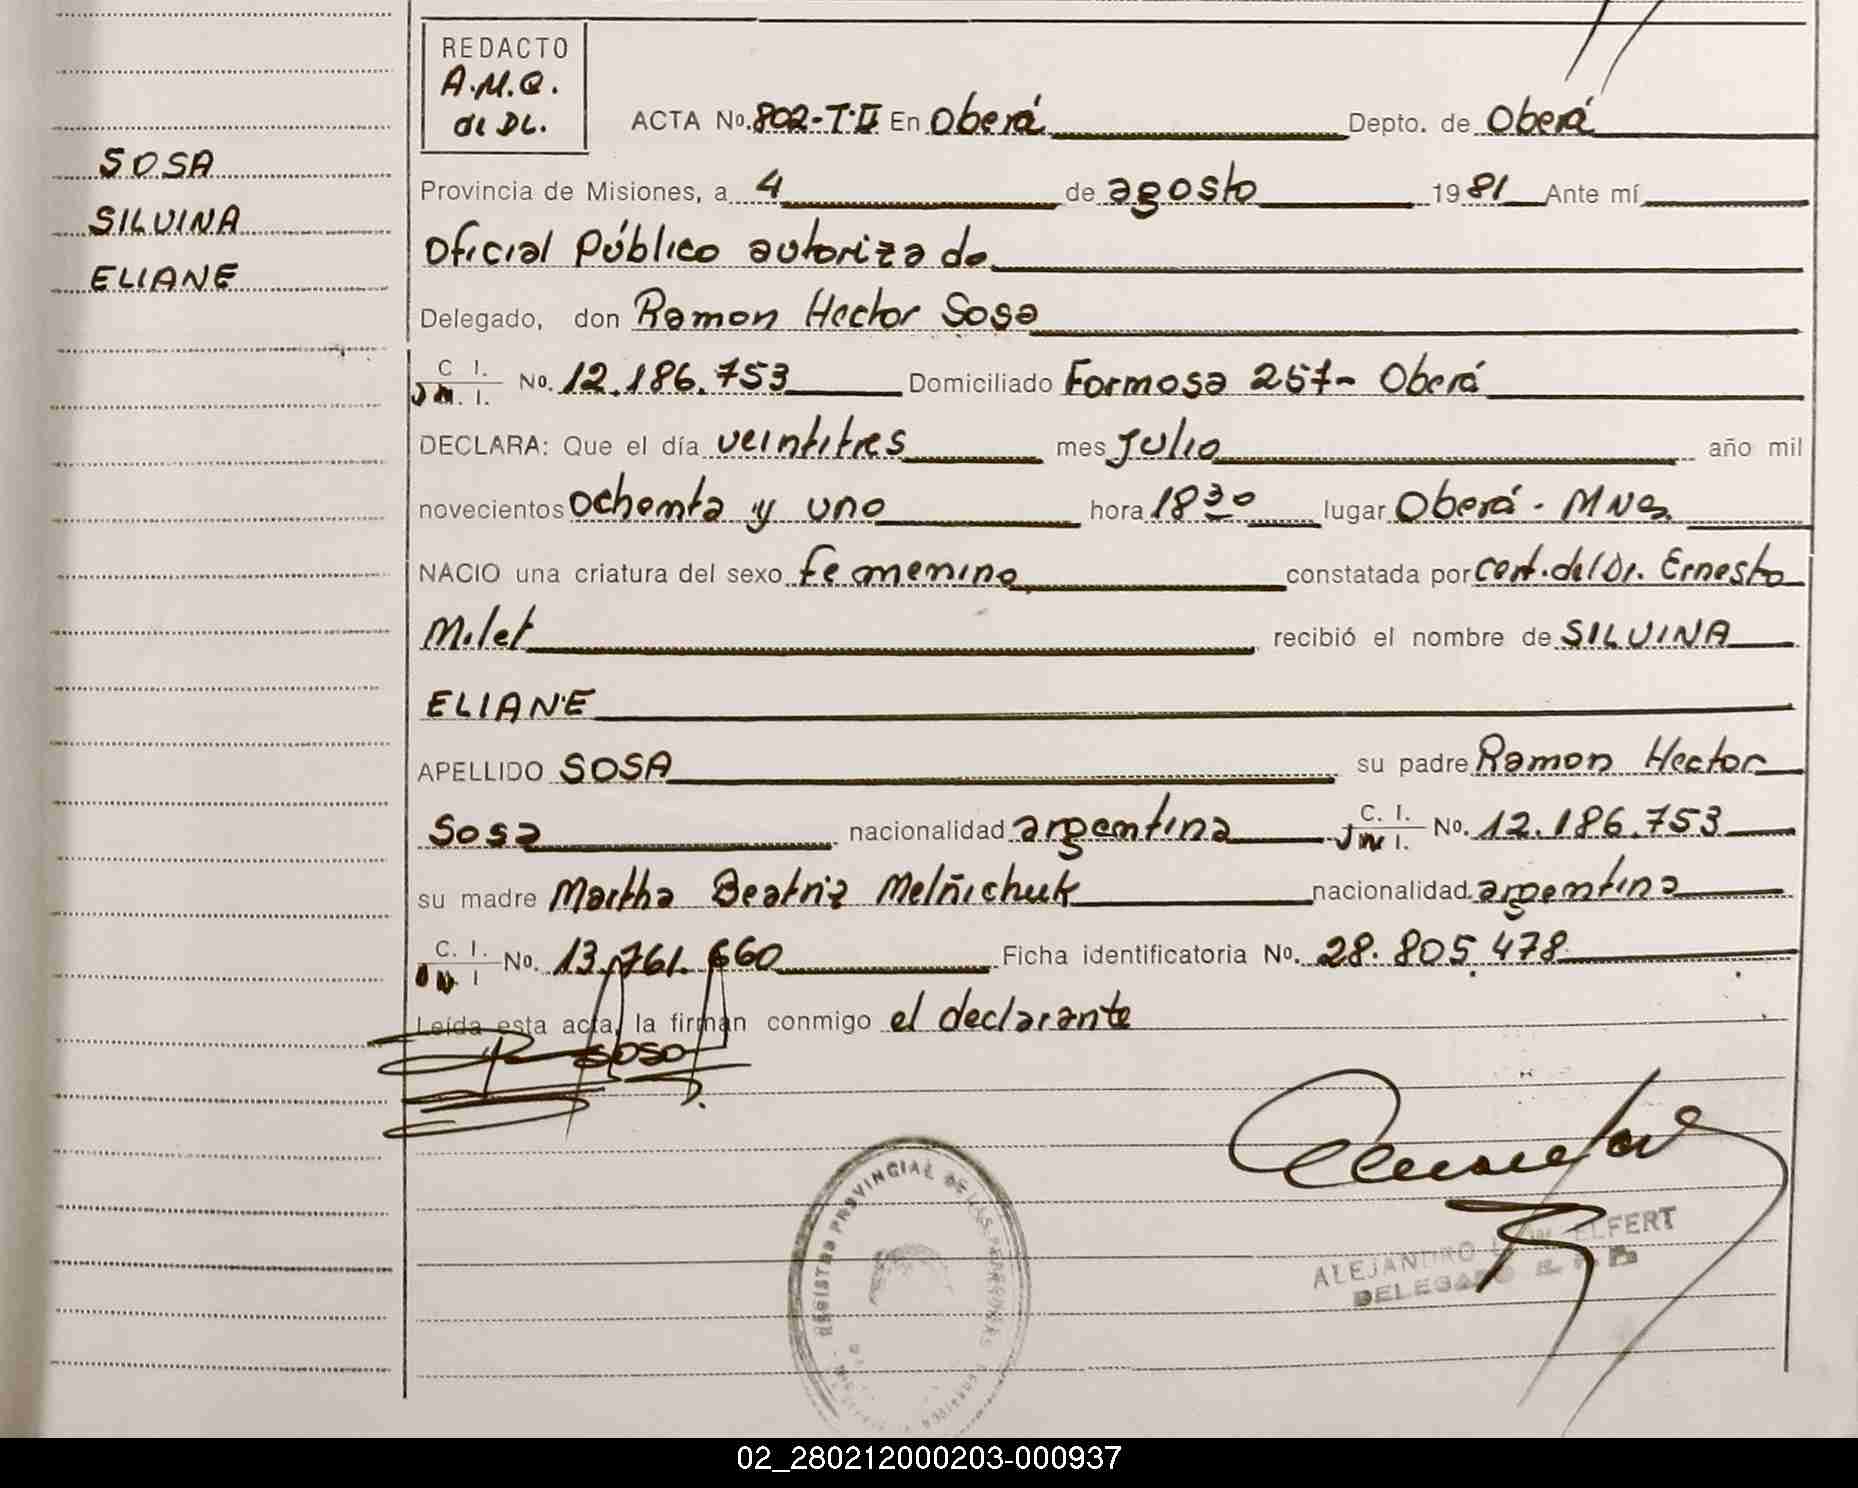 REDACTO
A.M.Q.
de DL.
SOSA
SILVINA
ELIANE
ACTA No. 802-T·II En Oberá Depto. de Oberá
Provincia de Misiones, a 4 de agosto 1981 Ante mí
Oficial Público autorizado
Delegado, don Ramon Hector Sosa
C I.
M. I. No. 12.186.753 Domiciliado Formosa 257- Oberá
DECLARA: Que el día veintitres mes Julio año mil
novecientos ochenta y uno hora 18 30 lugar Oberá - MNes.
NACIO una criatura del sexo femenino constatada por cert. del Dr. Ernesto
Milet recibió el nombre de SILVINA
ELIANE
APELLIDO SOSA su padre Ramon Hector
Sosa nacionalidad argentina C. I. No. 12.186.753
su madre Martha Beatriz Melñichuk nacionalidad argentina
C. I. No. 13.761.660 Ficha identificatoria No. 28.805.478
Leída esta acta, la firman conmigo el declarante
SOSA
REGISTRO PROVINCIAL DE LAS PERSONAS
ALEJANDRO ELFERT
DELEGADO
02_280212000203-000937